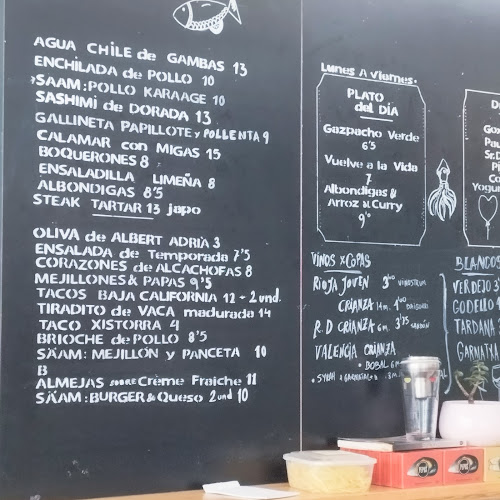 AGUA CHILE de GAMBAS 13
ENCHILADA de POLLO 10
SAAM: POLLO KARAAGE 10
SASHIMI de DORADA 13
GALLINETA PAPILLOTE y POLLENTA 9
CALAMAR con MIGAS 15
BOQUERONES 8
ENSALADILLA LIMEÑA 8
ALBONDIGAS 8'5
STEAK TARTAR 13 japo
OLIVA de ALBERT ADRIA 3
ENSALADA de Temporada 7'5
CORAZONES de ALCACHOFAS 8
MEJILLONES & PAPAS 9'5
TACOS BAJA CALIFORNIA 12 - 2 und.
TIRADITO de VACA madurada 14
TACO XISTORRA 4
BRIOCHE de POLLO 8'5
SÄAM: MEJILLÓN y PANCETA 10
B
ALMEJAS sobre Crème Fraiche 11
SÄAM: BURGER & Queso 2 und 10
Lunes A Viernes.
PLATO
del DÍA
Gazpacho Verde
6'5
Vuelve a la Vida
7
Albondigas &
Arroz al Curry
9'0
VINOS X COPAS
RIOJA JOVEN 3'40
CRIANZA 14m. 4'00
R.D CRIANZA 6m. 3'75
VALENCIA CRIANZA
• BOBAL 6m
BLANCOS
VERDEJO 3
GODELLO
TARDANA
GARNATXA